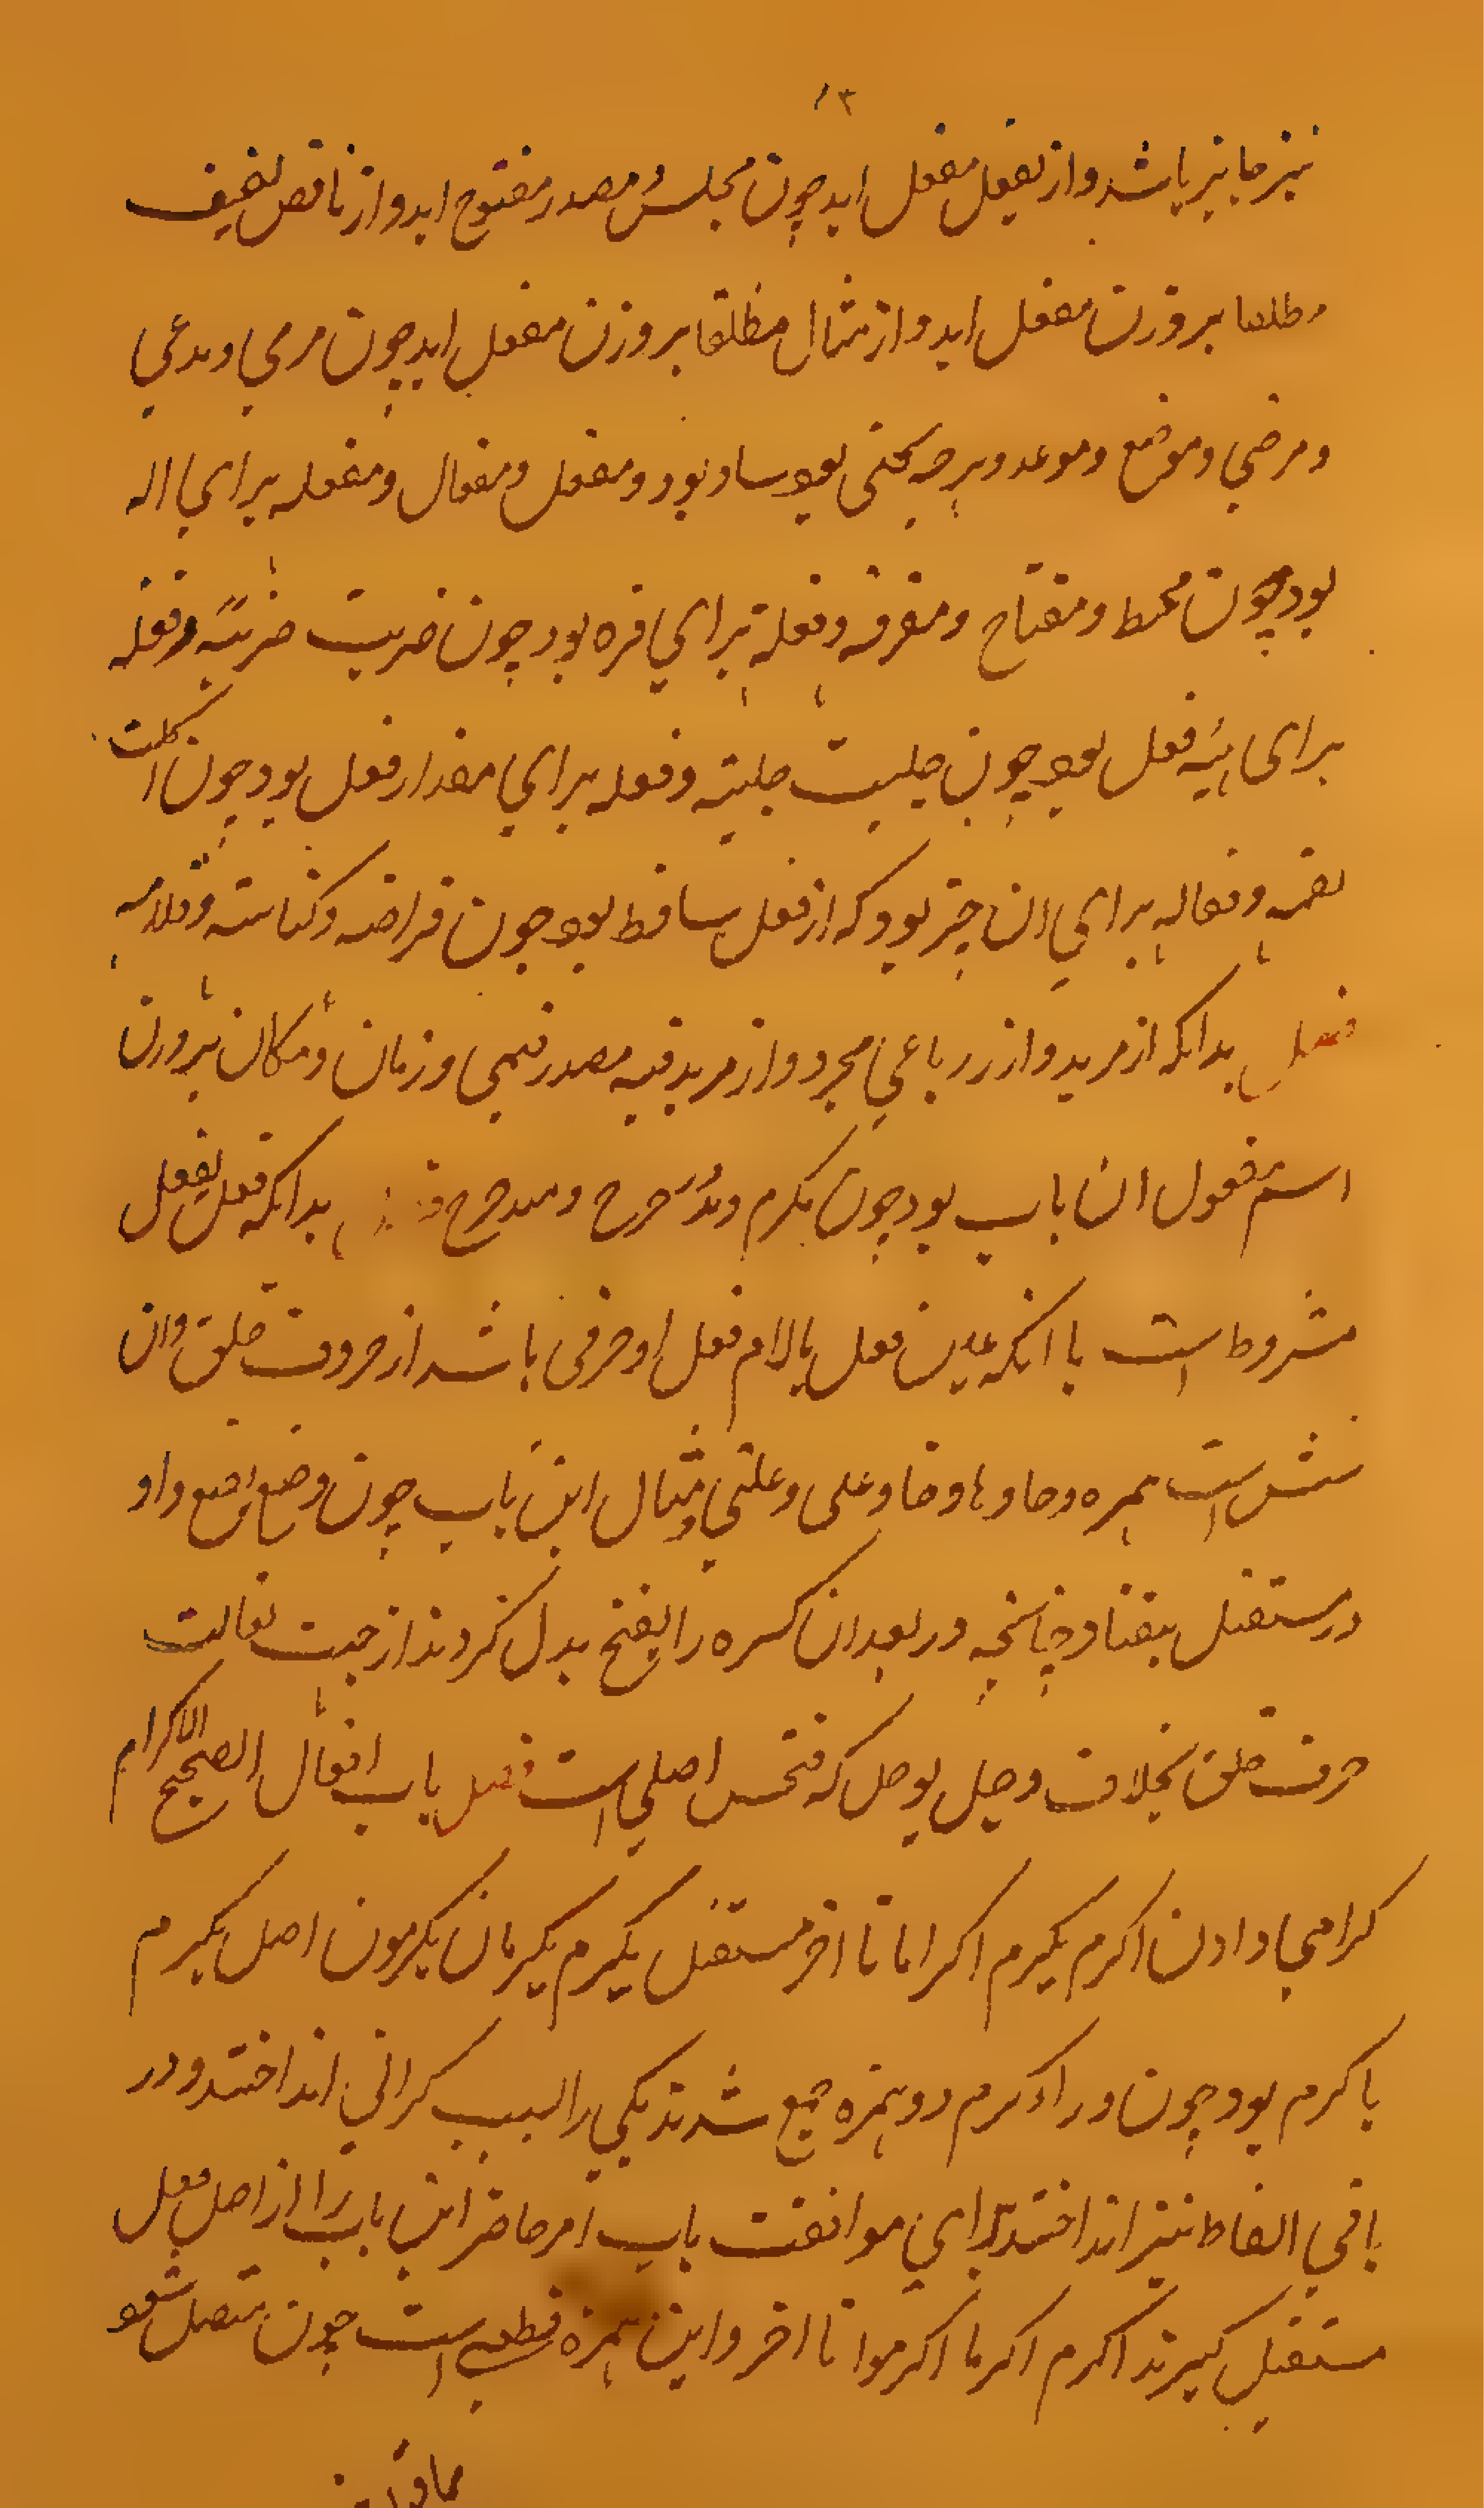 ۱۳
نیز جایز باشد واز یفعل مفعل اید چون مجلس مصدر مفتوح اید واز ناقص لفیف
مطلقا بر وزن مفعل اید واز مثال مطلقا بر وزن مفعل اید چون مرمی ومدعی
ومرضی وموضع وموعد وهرچه بجنی بود ساد بود ومفعل ومفعال ومفعله برای اله
بود چون مخیط ومفتاح ومغرفه وفعلة برای مره بود چون ضربت ضربة وفعله
برای هیه فعل بود چون جلست جلسته وفعله برای مقدار فعل بود چون اکلت
لقمه وفعاله برای ان چیز بود که از فعل ساقط بود چون قراضه وکناسته وقلامه
فصل بدانکه از مرید واز رباعی مجرد واز مرید فیه مصدر میمی وزمان ومکان بر وزن
اسم مفعول ان باب بود چون مکرم ومدحرج ومتدحرج فصل بدانکه فعل یفعل
مشروط است با انکه عین فعل یا لام فعل او حرفی باشد از حروف حلق وان
شش است همزه وحا وها وخا وعین وغین ومثال این باب چون وضع یضع واو
در مستقبل بیفتاد چنانچه در یعد ان کسره را بفتح بدل کردند از جهت ثقالت
حرف حلق بخلاف وجل یوجل که فتحس اصلی است فصل باب افعال الصحیح الاکرام
کرامی دادن اکرم یکرم اکراما تا اخر مستقبل یکرم یکرمان یکرمون اصل یکرم
یاکرم بود چون در ااکرم دو همزه جمع شدند یکی را بسبب کرانی انداختند ودر
باقی الفاظ نیز انداختند برای موافقت باب امر حاضر این باب را از اصل فعل
مستقبل کیرند اکرم اکرما اکرموا تا اخر واین همزه قطعی است چون متصل شود